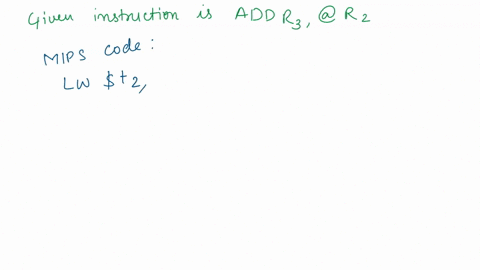 Given instruction is ADD R3, @ R2
MIPS code :
LW $t2,